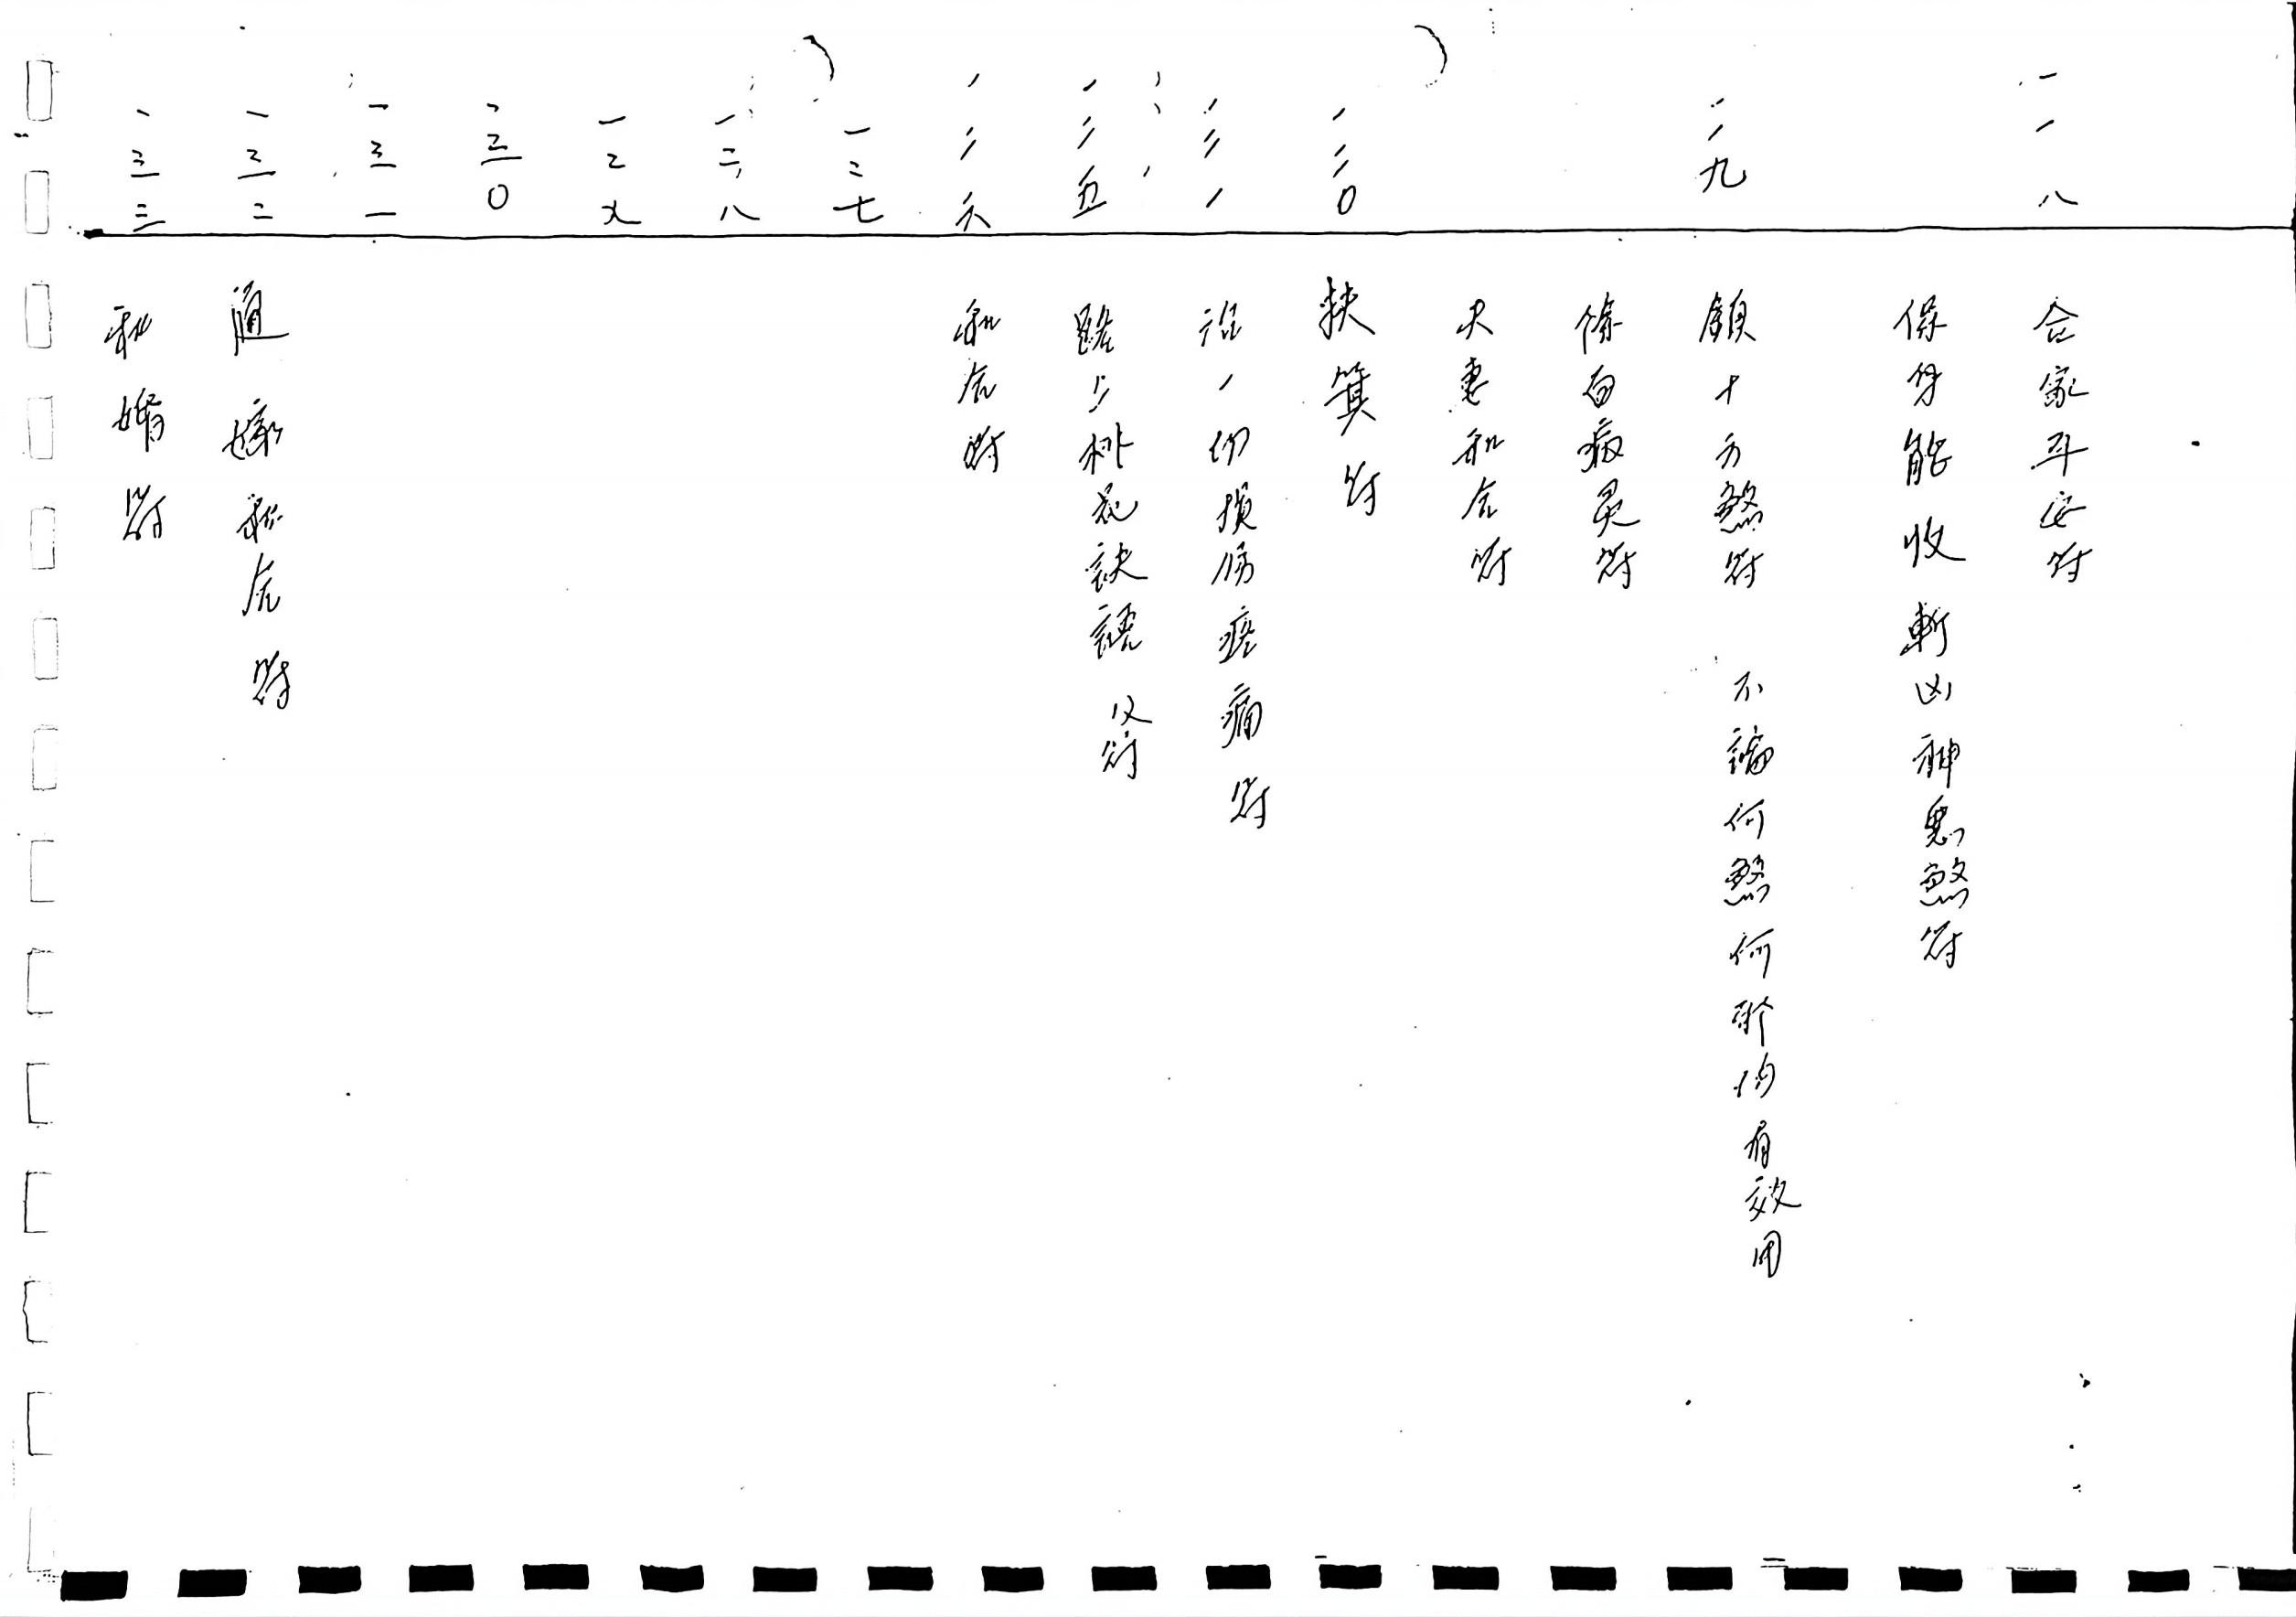 一一八
合家平安符
保身能收斬凶神惡煞符
一一九
鎮十方煞符 不論何煞何邪均有效用
除百病灵符
夫妻和合符
一二〇
扶箕符
一二一
治一切損傷疼痛符
一二五
桃花訣 符
一二六
和合符
一二七
一二八
一二九
一三〇
一三一
一三二
通 和合符
一三三
和婚符